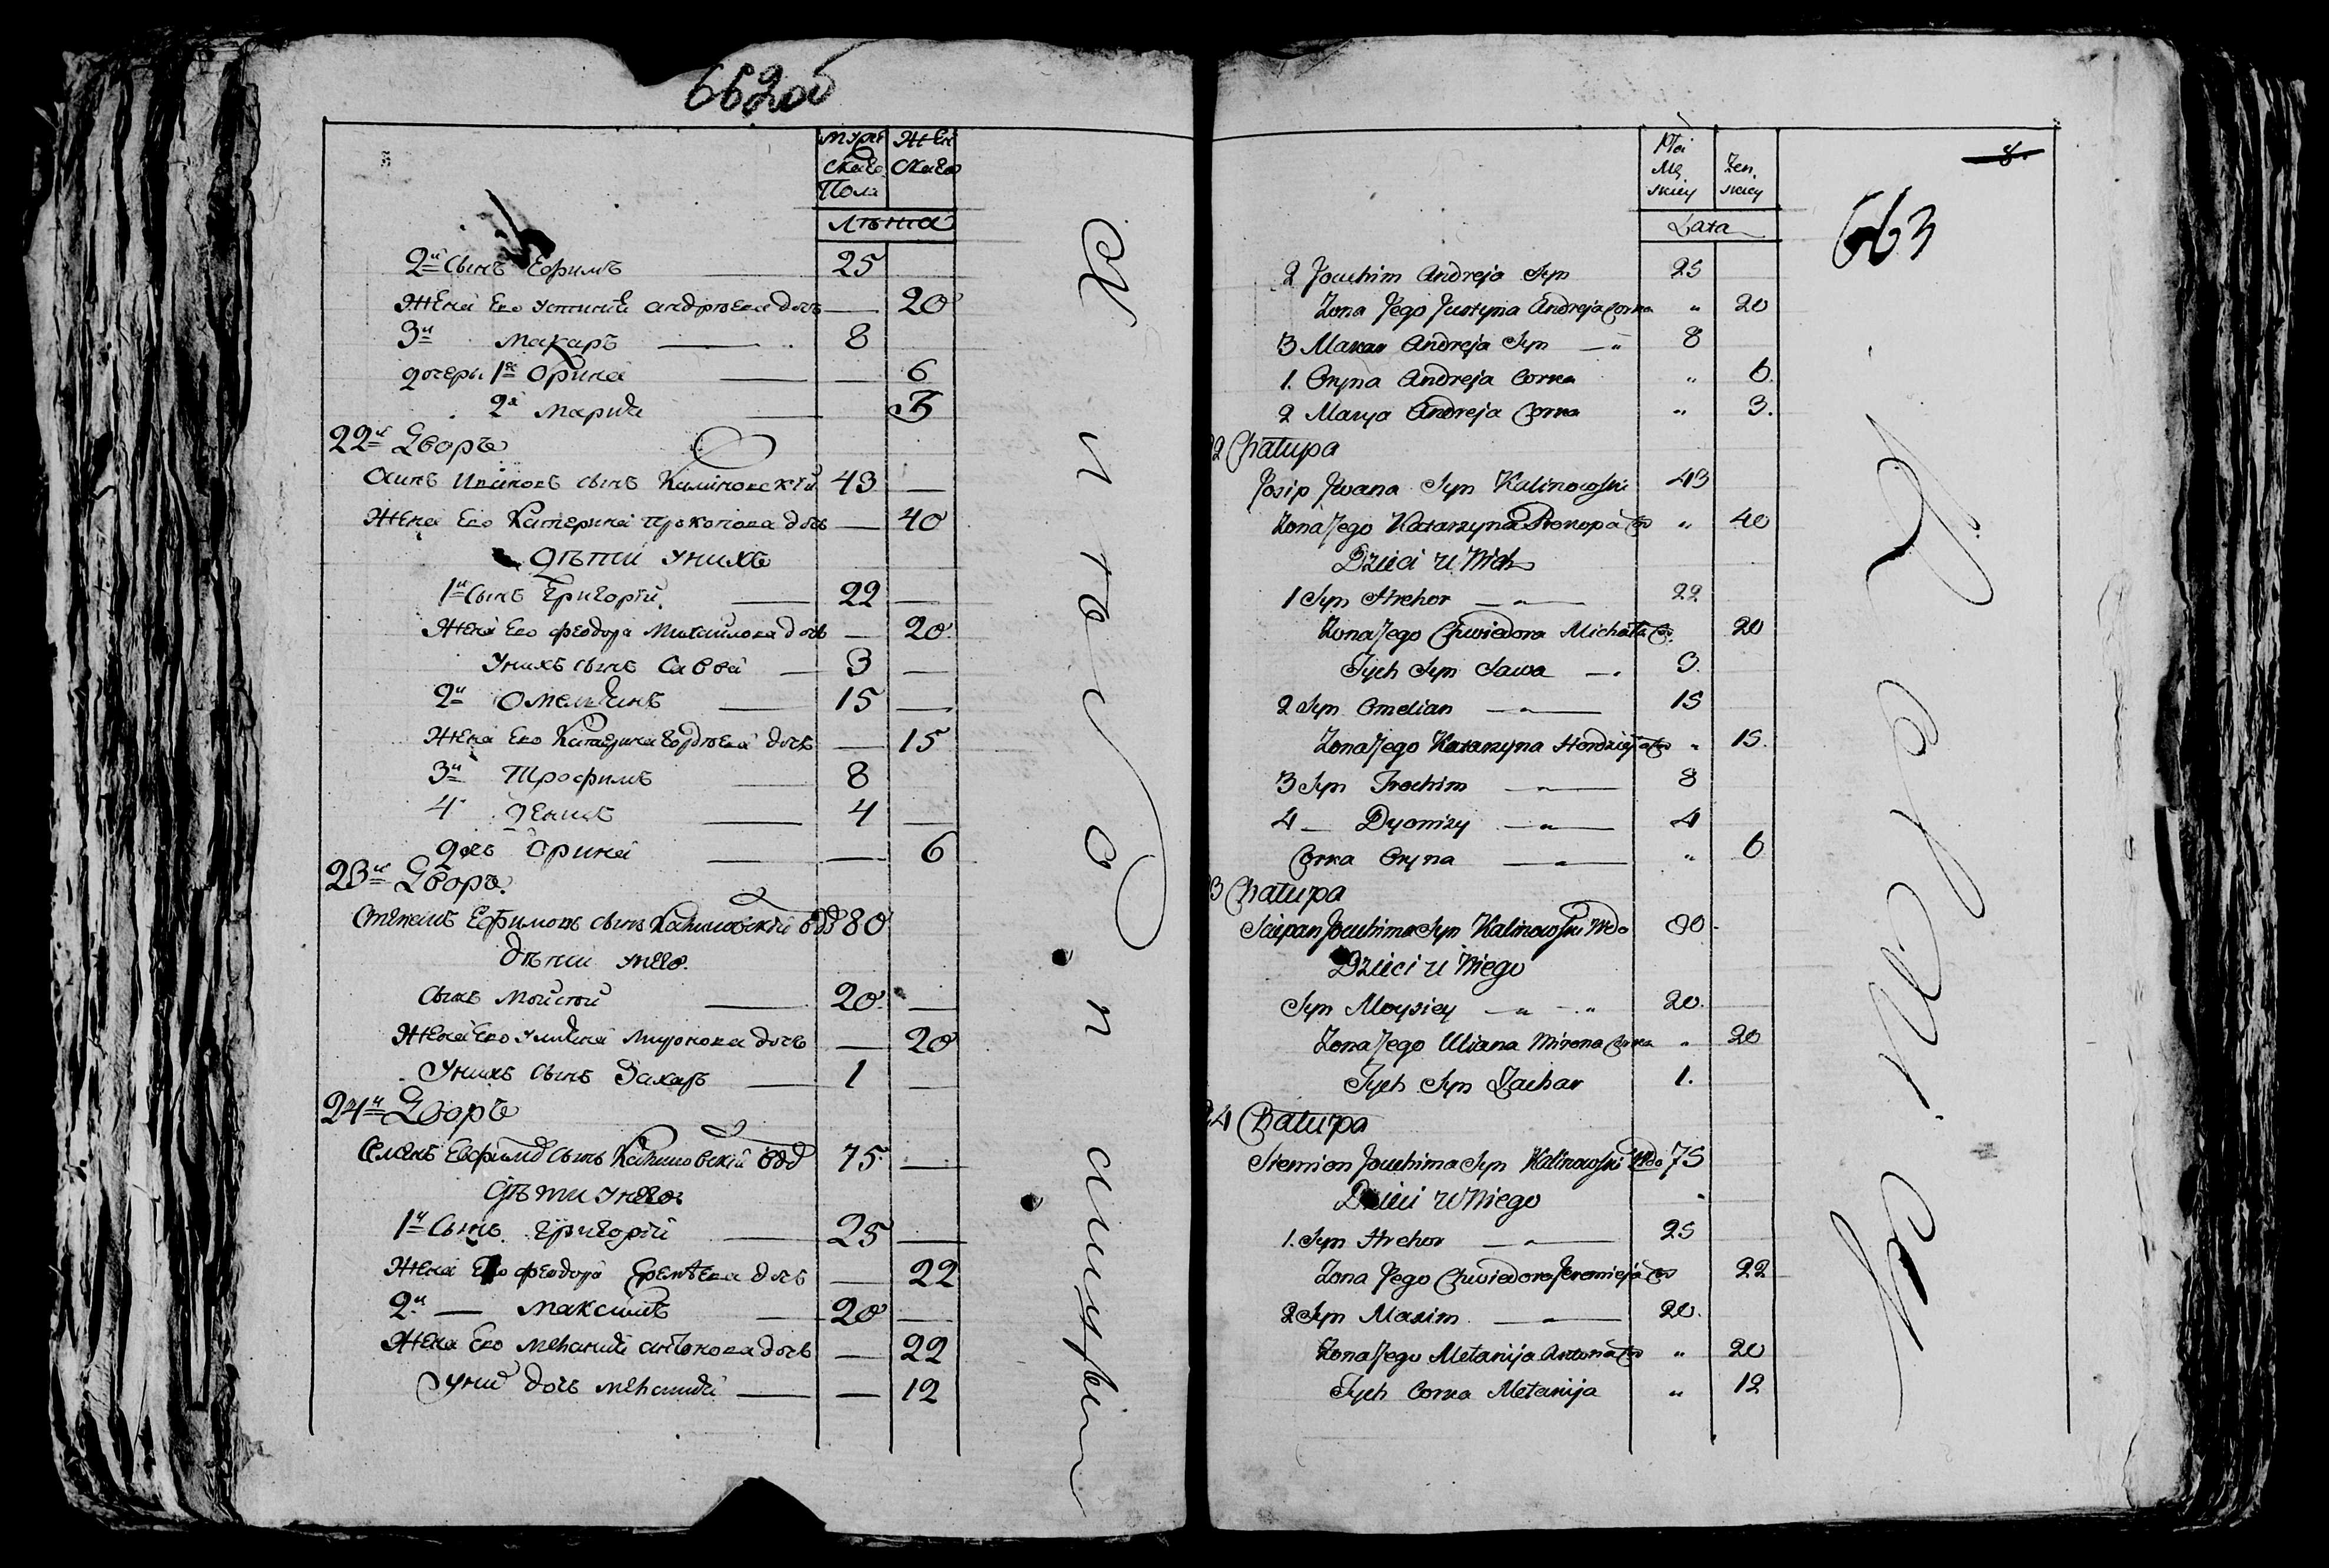 662 об
Муже Жен
скаго скаго
Пола
Лѣта
2й Сынъ Ефимъ 25
Жена Его Устинія андрѣева дочь — 20
3й Макаръ — 8
дочери 1я Орина — — 6
2я Мария — 3
22й Дворъ
Осипъ Ивановъ сынъ Калиновскій 43 —
Жена Его Катерина Прокопова дочь — 40
Дѣти унихъ
1й Сынъ Григорій — 22 —
Жена Его Феодора Михайлова дочь — 20
Унихъ сынъ Савва — 3 —
2й Омельянъ — 15 —
Жена Его Катерина Гордѣева дочь — 15
3й Трофимъ — 8
4 Денисъ — 4 —
Дочь Орина — — 6
23й Дворъ
Степанъ Ефимовъ сынъ Калиновскій вдв 80
Дѣти унего
Сынъ Мойсей — 20 —
Жена Его Ульяна Миронова дочь — 20
Унихъ сынъ Захаръ — 1 —
24й Дворъ
Семенъ Ефимовъ сынъ Калиновскій вдв 75 —
Дѣти унего
1й Сынъ Григорій — 25 —
Жена Его Феодора Еремѣева дочь — 22
2й — Максимъ — 20 —
Жена Его Меланія антонова дочь — 22
Унихъ дочь Меланія — — 12
Płci
Mę Żen
skiey skiey
Lata
8.
663
2 Jouchim Andreja Syn 25
Zona Jego Justyna Andreja Corka " 20
3 Makar Andreja Syn — " 8
1. Oryna Andreja Corka " 6.
2 Marya Andreja Corka " 3.
22 Chałupa
Josip Jwana Syn Kalinowski 43
Zona Jego Katarzyna Prokopa Cor " 40
Dzieci u Nich
1 Syn Hrehor — " — 22
Zona Jego Chwiedora Michała Cor. 20
Tych Syn Sawa — . 3.
2 Syn Omelian — " — 15
Zona Jego Katarzyna Hordzieja Cor " 15.
3 Syn Trochim — " — 8
4 — Dyonizy — " — 4
Corka Oryna — " — " 6
23 Chałupa
Sciepan Jouchima Syn Kalinowski Wdo 80.
Dzieci u Niego
Syn Moysiey — " — " 20.
Zona Jego Uliana Mirona Corka " 20
Tych Syn Zachar 1.
24 Chałupa
Siemion Jouchima Syn Kalinowski Wdo 75
Dzieci u Niego
1. Syn Hrehor — " — 25
Zona Jego Chwiedora Jeremieja Cor 22
2 Syn Maxim — " — 20.
Zona Jego Metanija Antona Cor " 20
Tych Corka Metanija " 12